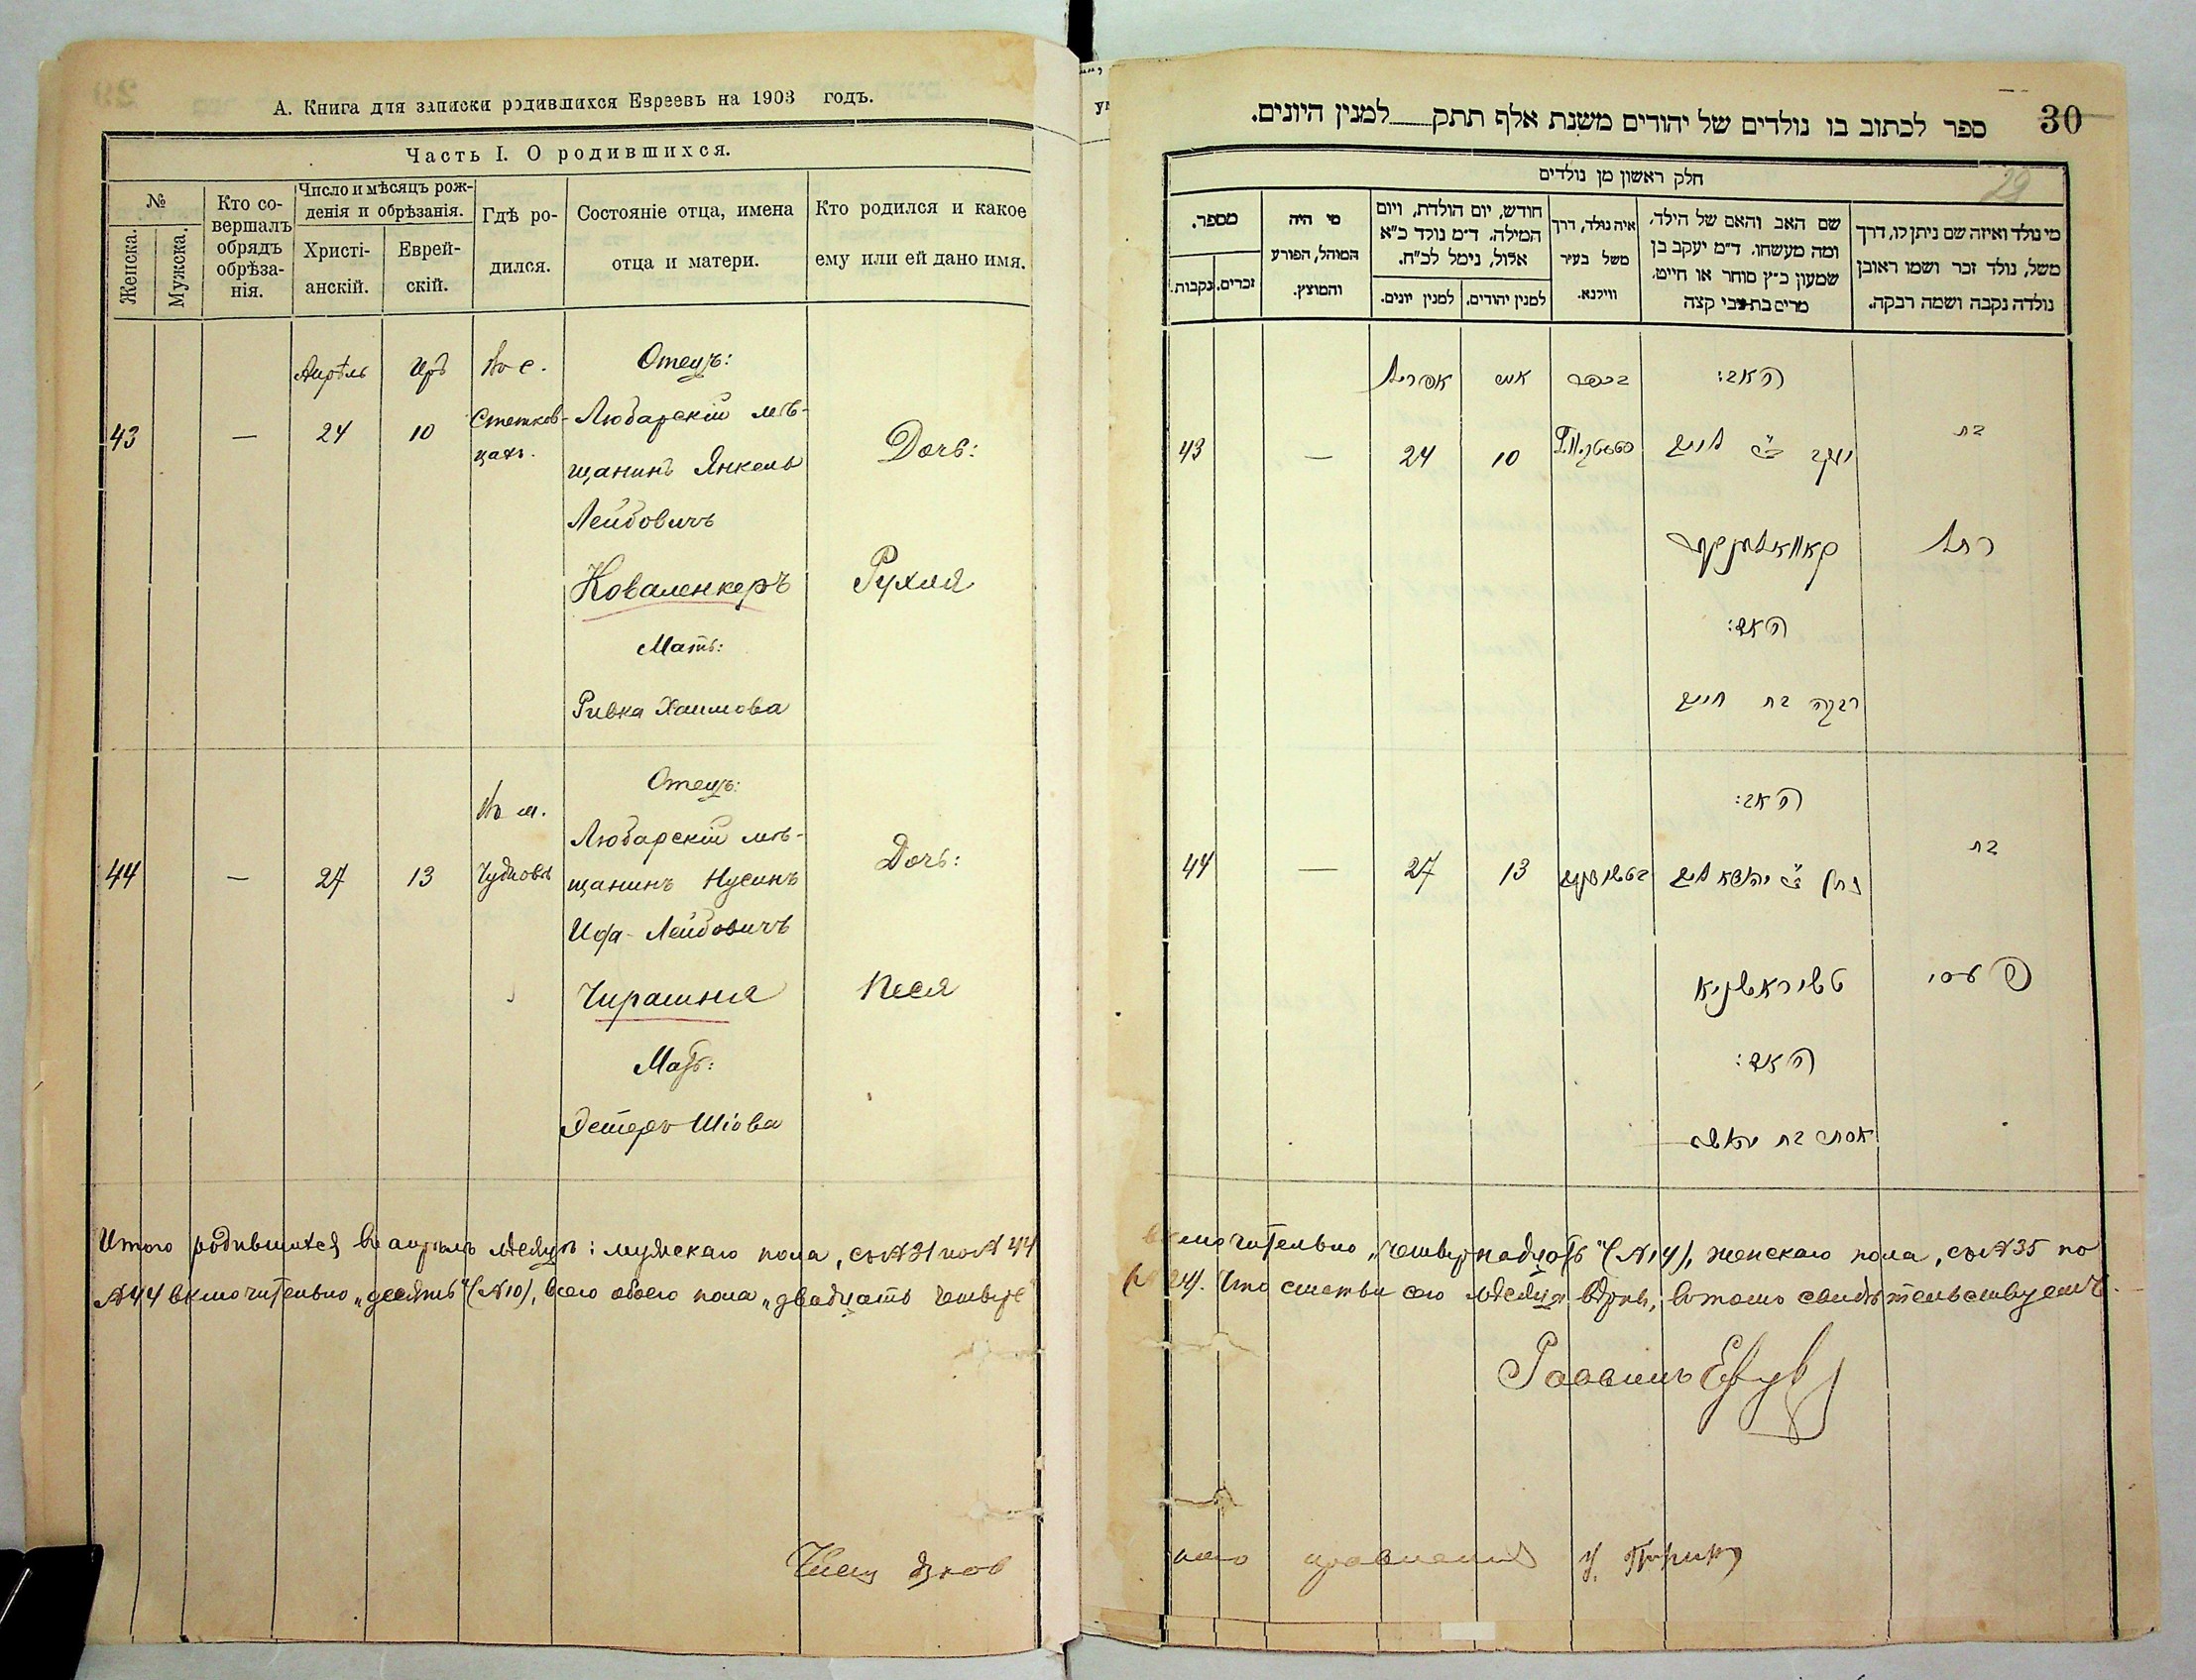 А. Книга для записки родившихся Евреевъ на 1903 годъ.
Часть I. О родившихся.
№
Женска.
Мужска.
Кто со-
вершалъ
обрядъ
обрѣза-
нія.
Число и мѣсяцъ рож-
денія и обрѣзанія.
Христі-
анскій.
Еврей-
скій.
Гдѣ ро-
дился.
Состояніе отца, имена
отца и матери.
Кто родился и какое
ему или ей дано имя.
43
—
Апрѣль
24
Иръ
10
Во с.
Стетков-
цахъ.
Отецъ:
Любарскій мѣ-
щанинъ Янкель
Лейбовичъ
Коваленкеръ
Мать:
Ривка Хаимова
Дочь:
Рухля
44
—
27
13
Въ м.
Чудновѣ
Отецъ:
Любарскій мѣ-
щанинъ Нусинъ
Лейбовичъ
Чирашня
Мать:
Эстеръ Шіова
Дочь:
Песя
Итого родившихся въ апрѣлѣ мѣсяцѣ: мужскаго пола, съ №31 по №44
№44 включительно „десять“ (№10), всего обоего пола „двадцать четыре“
Членъ
30
ספר לכתוב בו נולדים של יהודים משנת אלף תתק למנין היונים.
29
חלק ראשון מן נולדים
מי נולד ואיזה שם ניתן לו, דרך
משל, נולד זכר ושמו ראובן
נולדה נקבה ושמה רבקה.
שם האב והאם של הילד,
ומה מעשהו. ד״מ יעקב בן
שמעון כ״ץ סוחר או חייט.
מרים בת צבי קצה
איה נולד, דרך
משל בעיר
ווילנא.
חודש, יום הולדת, ויום
המילה. ד״מ נולד כ״א
אלול, נימל לכ״ח.
למנין יהודים.
למנין יונים.
מי היה
המוהל, הפורע
והמוצץ.
מספר.
זכרים.
נקבות.
בת
רחל
האב:
יעקב ב״ר לייב
קאוואלענקער
האם:
רבקה בת חיים
בכפר
אייר
10
אפריל
24
—
43
בת
פעסי
האב:
נתן ב״ר יהושע לייב
טשיראשניא
האם:
אסתר בת יהושע
13
27
—
44
включительно „четырнадцать“ (№14), женскаго пола, съ №35 по
(№24). Что статьи сего мѣсяца вѣрны, въ томъ свидѣтельствуемъ.
Раввинъ